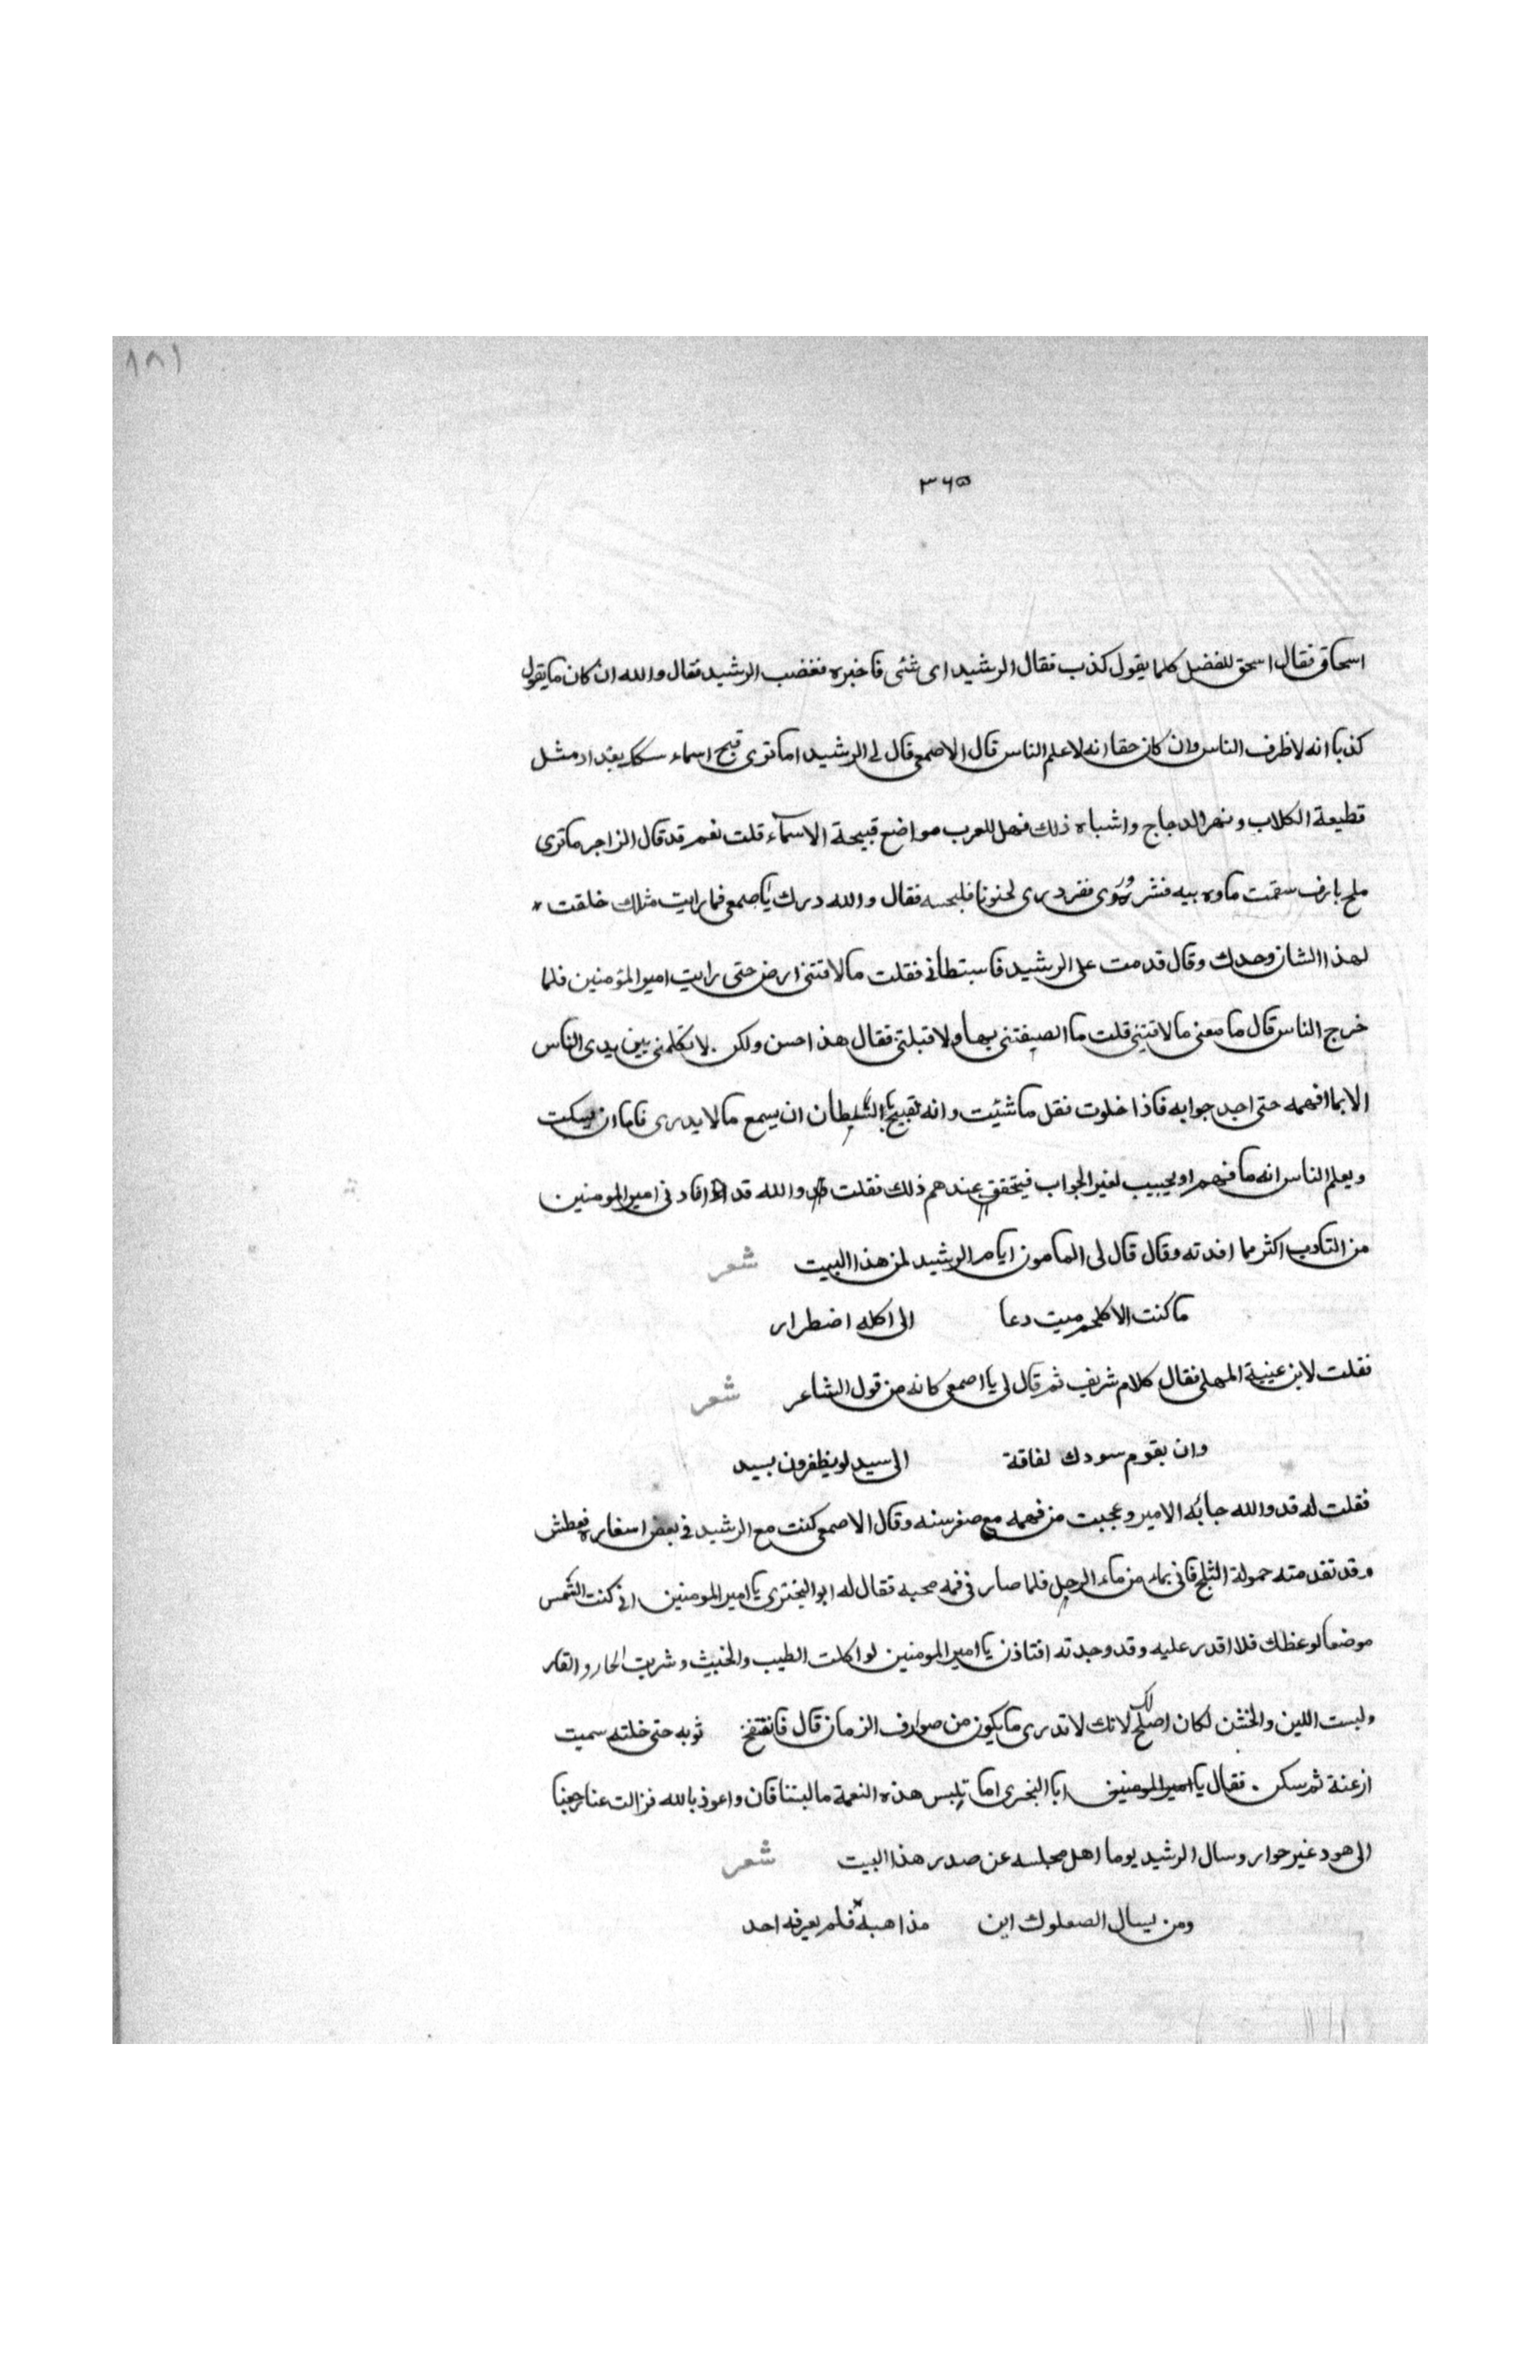 ١٨١
٣٦٥
اسحاق فقال اسحق للفضل كلما يقول كذب فقال الرشيد اى شئى فاخبره فغضب الرشيد فقال والله ان كان ما يقول
كذبا انه لاظرف الناس وان كان حقا انه لاعلم الناس قال الاصمعى قال لى الرشيد اما ترى قبح اسماء سكك بغداد مثل
قطيعة الكلاب ونهر الدجاج واشباه ذلك فهل للعرب مواضع قبيحة الاسمآء قلت نعم قد قال الزاجر ما ترى
فقال والله درك يا اصمعى فما رايت مثلك خلقت
لهذا الشان وحدك وقال قدمت على الرشيد فاستبطانى فقلت ما لاقتنى ارض حتى رايت امير المؤمنين فلما
خرج الناس قال ما معنى ما لاقتنى قلت ما الصيفتنى بها ولا قبلتنى فقال هذا حسن ولكن لا تكلمنى بين يدى الناس
الا بما افهمه حتى اجد جوابه فاذا خلوت فقل ما شئيت وانه لقبيح بالسلطان ان يسمع ما لا يدرى فاما ان يسكت
ويعلم الناس انه ما فهم او يجيب لغير الجواب فيتحقق عندهم ذلك فقلت والله قد افادنى امير المومنين
من التادب اكثر مما افدته وقال قال لى المامون ايام الرشيد لمن هذا البيت شعر
ما كنت الا كلحم ميت دعا الى اكله اضطرار
فقلت لابن عيينة المهلبى فقال كلام شريف ثم قال لى يا اصمعى كانه من قول الشاعر شعر
وان بقوم سودك لفاقة الى سيد لو يظفرون بسيد
فقلت له قد والله جابه الامير وعجبت من فهمه مع صغر سنه وقال الاصمعى كنت مع الرشيد فى بعض اسفاره فعطش
وقد تقدمته حمولة الثلج فاتى بماء من ماء الرحل فلما صار فى فمه مجه فقال له ابو البخترى يا امير المومنين انى كنت التمس
موضعا لوعظك فلا اقدر عليه وقد وجدته افتاذن يا امير المومنين لو اكلت الطيب والخبيث وشربت الحار والقار
ولبست اللين والخشن لكان اصلح لك لانك لا تدرى ما يكون من صوارف الزمان قال فانتفخ ثوبه حتى خلته سميت
ثم سكن فقال يا امير المومنين ابا البخترى اما تلبس هذه النعمة ما لبستنا فان واعوذ بالله فزالت عنا رجعنا
الى هود غير حوار وسال الرشيد يوما اهل مجلسه عن صدر هذا البيت شعر
ومن يسال الصعلوك اين مذاهبه فلم يعرفه احد